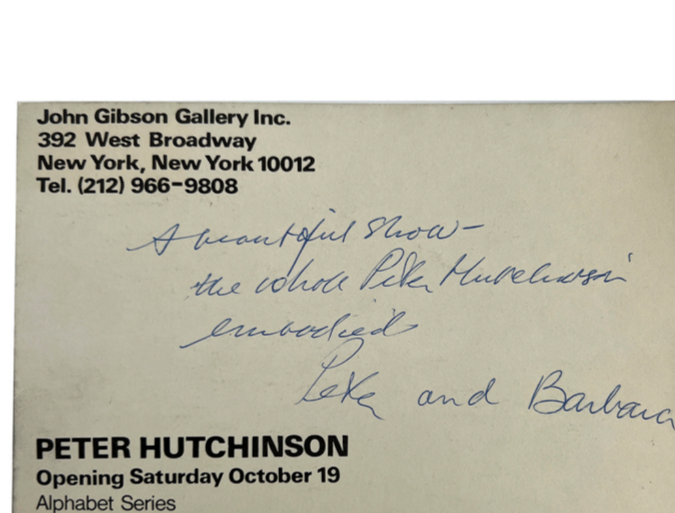 John Gibson Gallery Inc.
392 West Broadway
New York, New York 10012
Tel. (212) 966-9808
A beautiful show -
the whole Peter Hutchinson
embodied
Peter and Barbara
PETER HUTCHINSON
Opening Saturday October 19
Alphabet Series